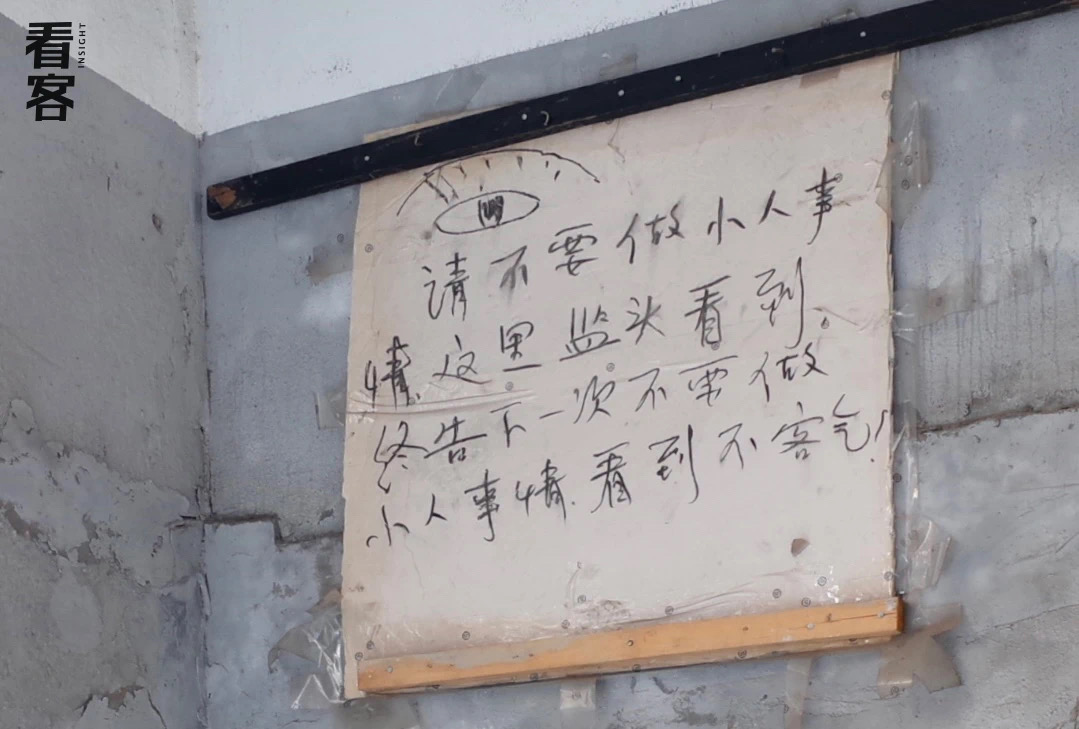 看客
INSIGHT
请不要做小人事
情.这里监头看到.
终告下一次不要做
小人事情.看到不客气!